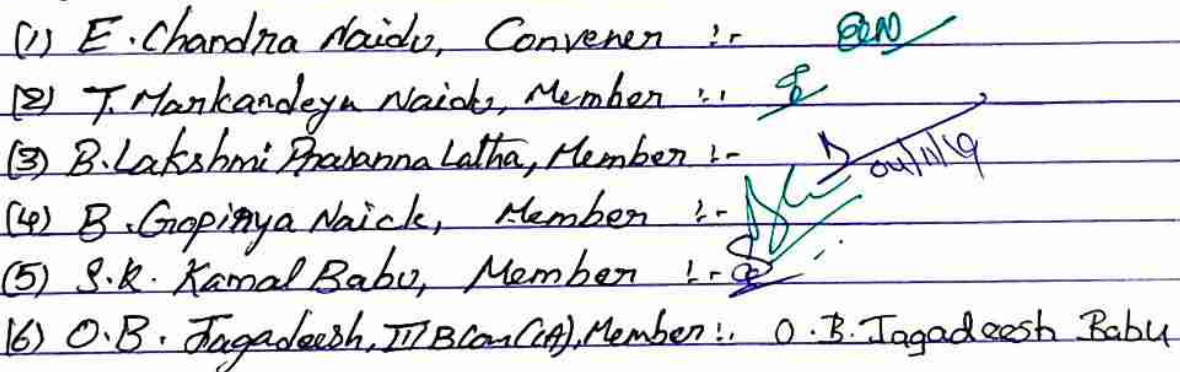 (1) E. Chandra Naidu, Convener :-
(2) T. Markandeya Naidu, Member :-
(3) B. Lakshmi Prasanna Latha, Member :- 04/11/19
(4) B. Gopinya Naick, Member :-
(5) S.K. Kamal Babu, Member :-
(6) O.B. Jagadeesh, III BCom (CA), Member :- O.B. Jagadeesh Babu